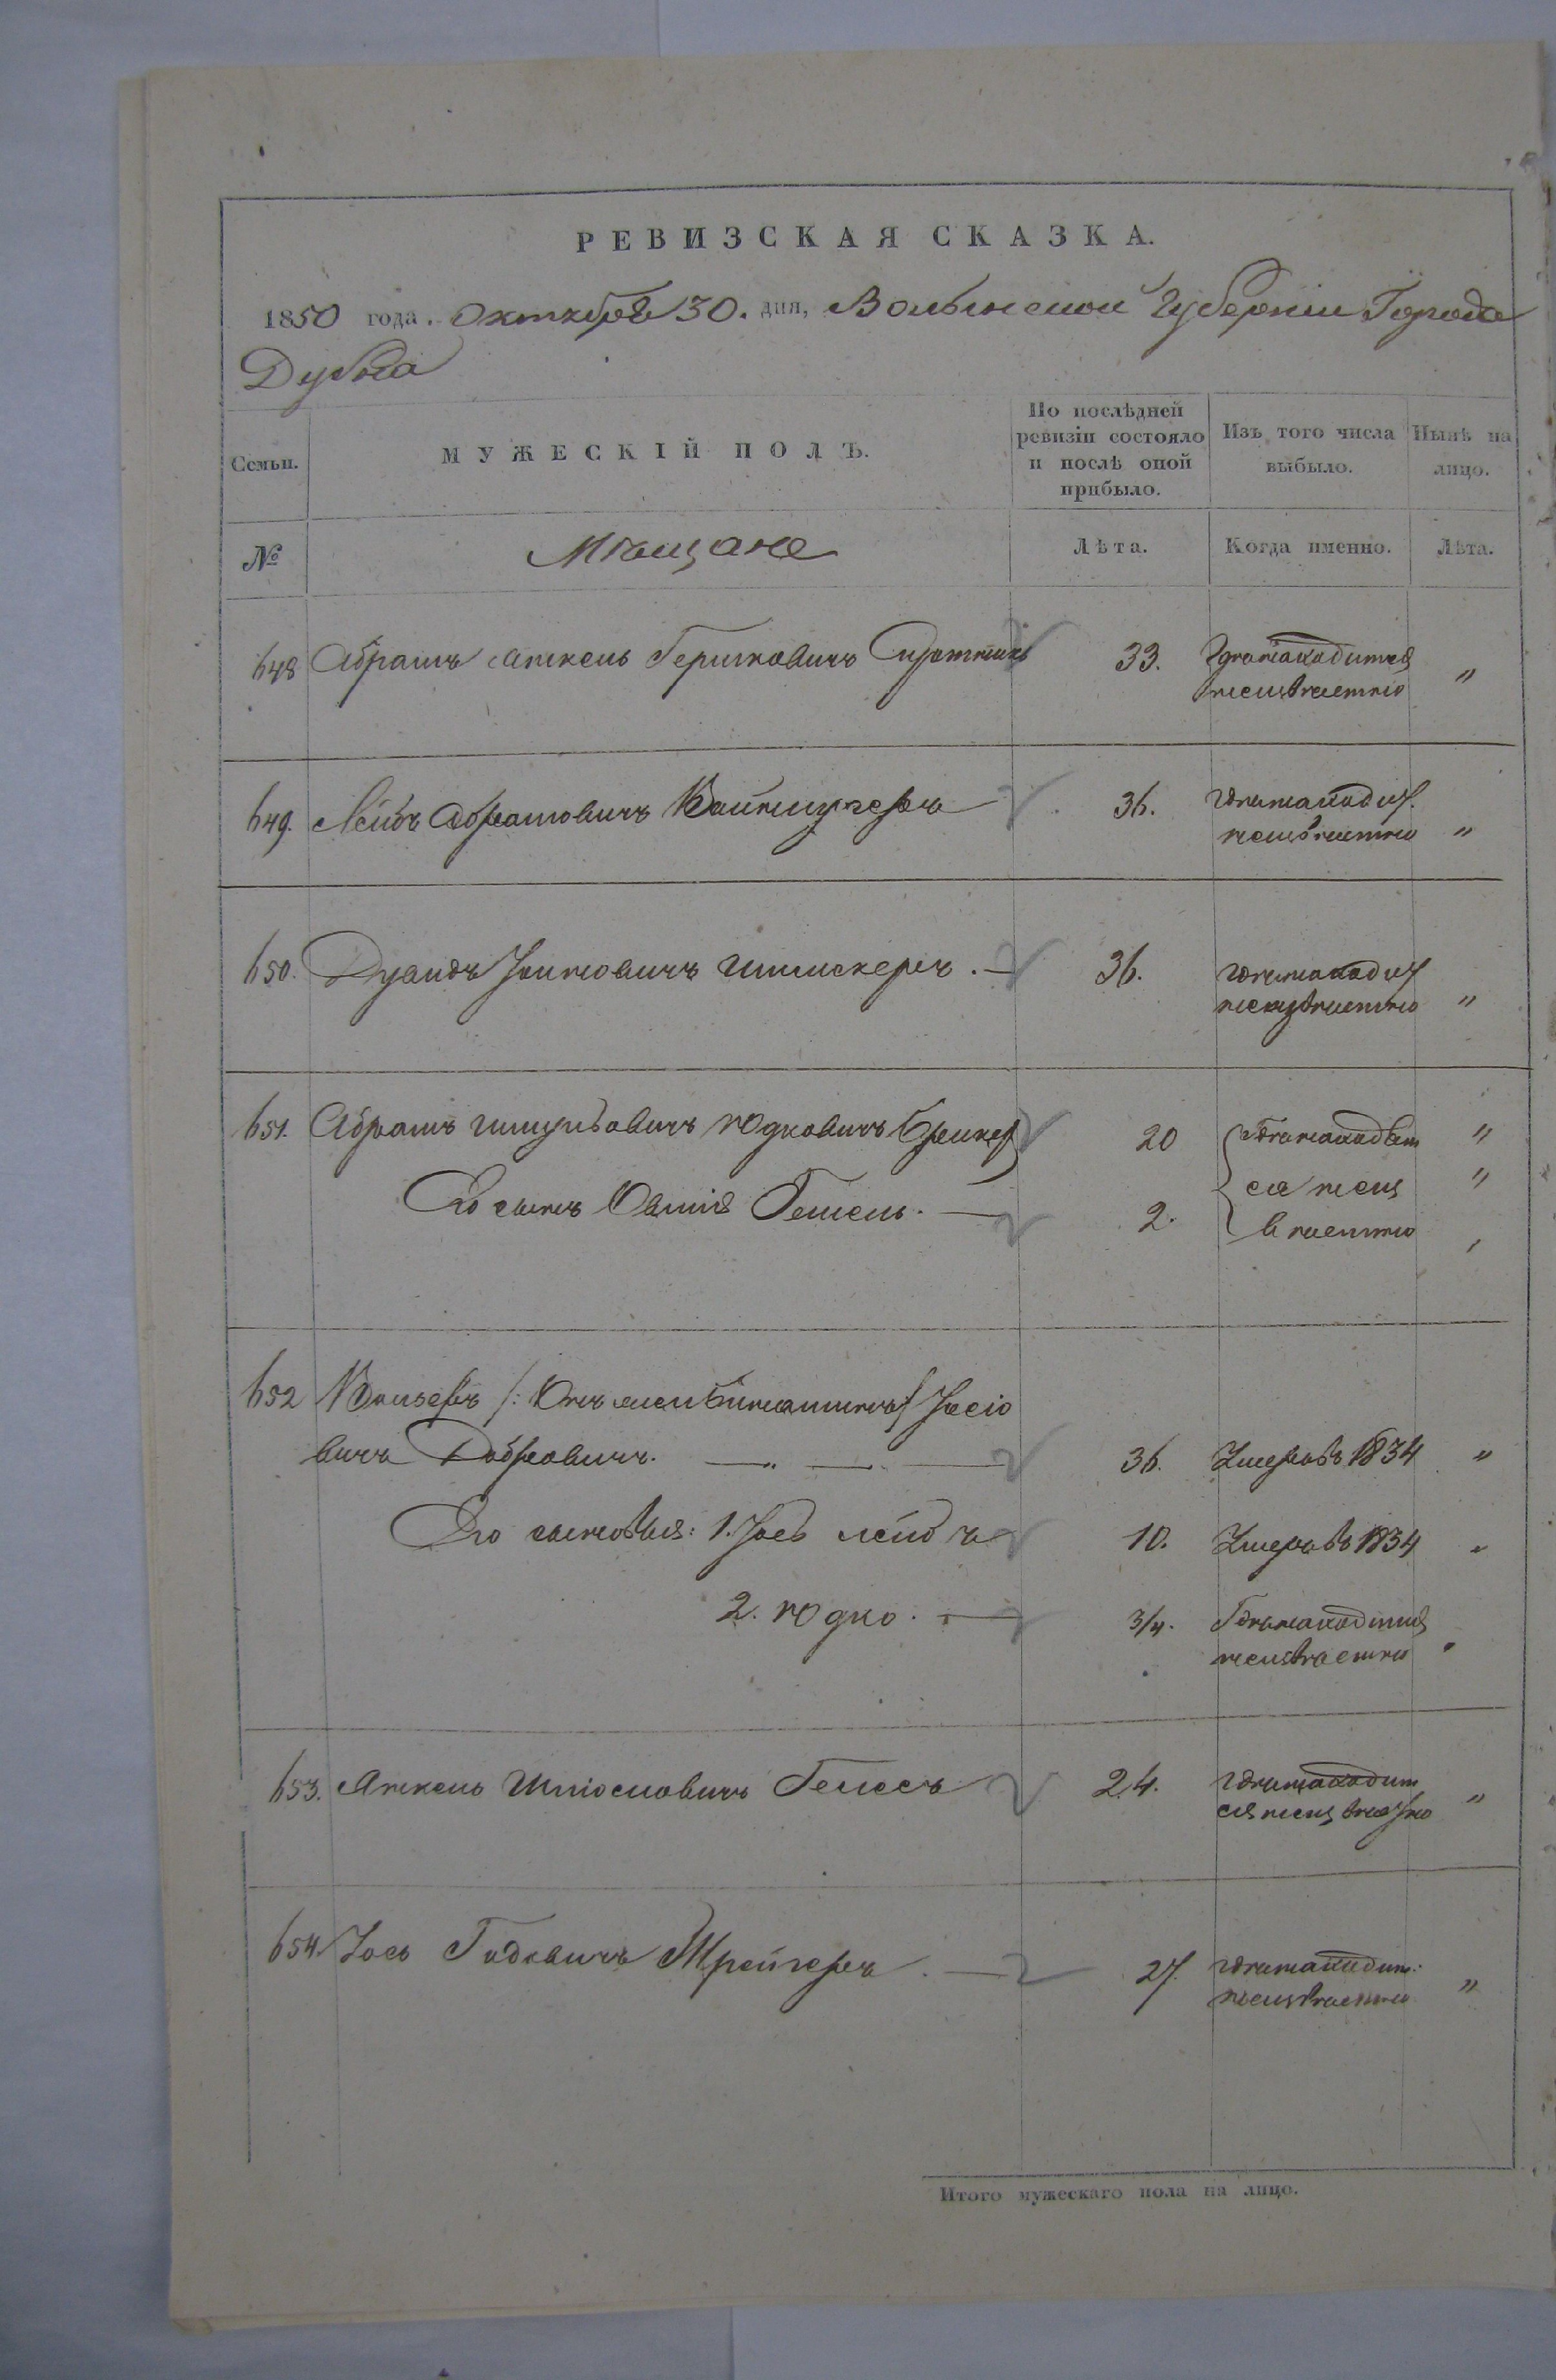 РЕВИЗСКАЯ СКАЗКА.
1850 года. Октября 30. дня, Волынской Губерніи Города
Дубна
Семьи. МУЖЕСКІЙ ПОЛЪ. По послѣдней ревизіи состояло и послѣ оной прибыло. Изъ того числа выбыло. Нынѣ на лицо.
№ Мѣщане Лѣта. Когда именно. Лѣта.
648 Абрамъ Янкель Гершковичъ 33. Где находится "
неизвѣстно
649. Лейбъ Абрамовичъ 36. где находит.
неизвѣстно "
650. Дувидъ 36. где находит
неизвѣстно "
651. Абрамъ Шмулёвичъ Юдковичъ 20 где находит "
Его сынъ 2. ся неиз "
вѣстно
652 /: Онъ Іосіо
вичъ 36. Умеръ въ 1834 "
Его сыновья: 1. Іось Лейбъ 10. Умеръ въ 1834 "
2. Юдко. 3/4. Где находится
неизвѣстно "
653. Янкель 24. где находит
ся неизвѣстно "
654 Іось Трейгеръ. 27. где находит:
неизвѣстно "
Итого мужескаго пола на лицо.